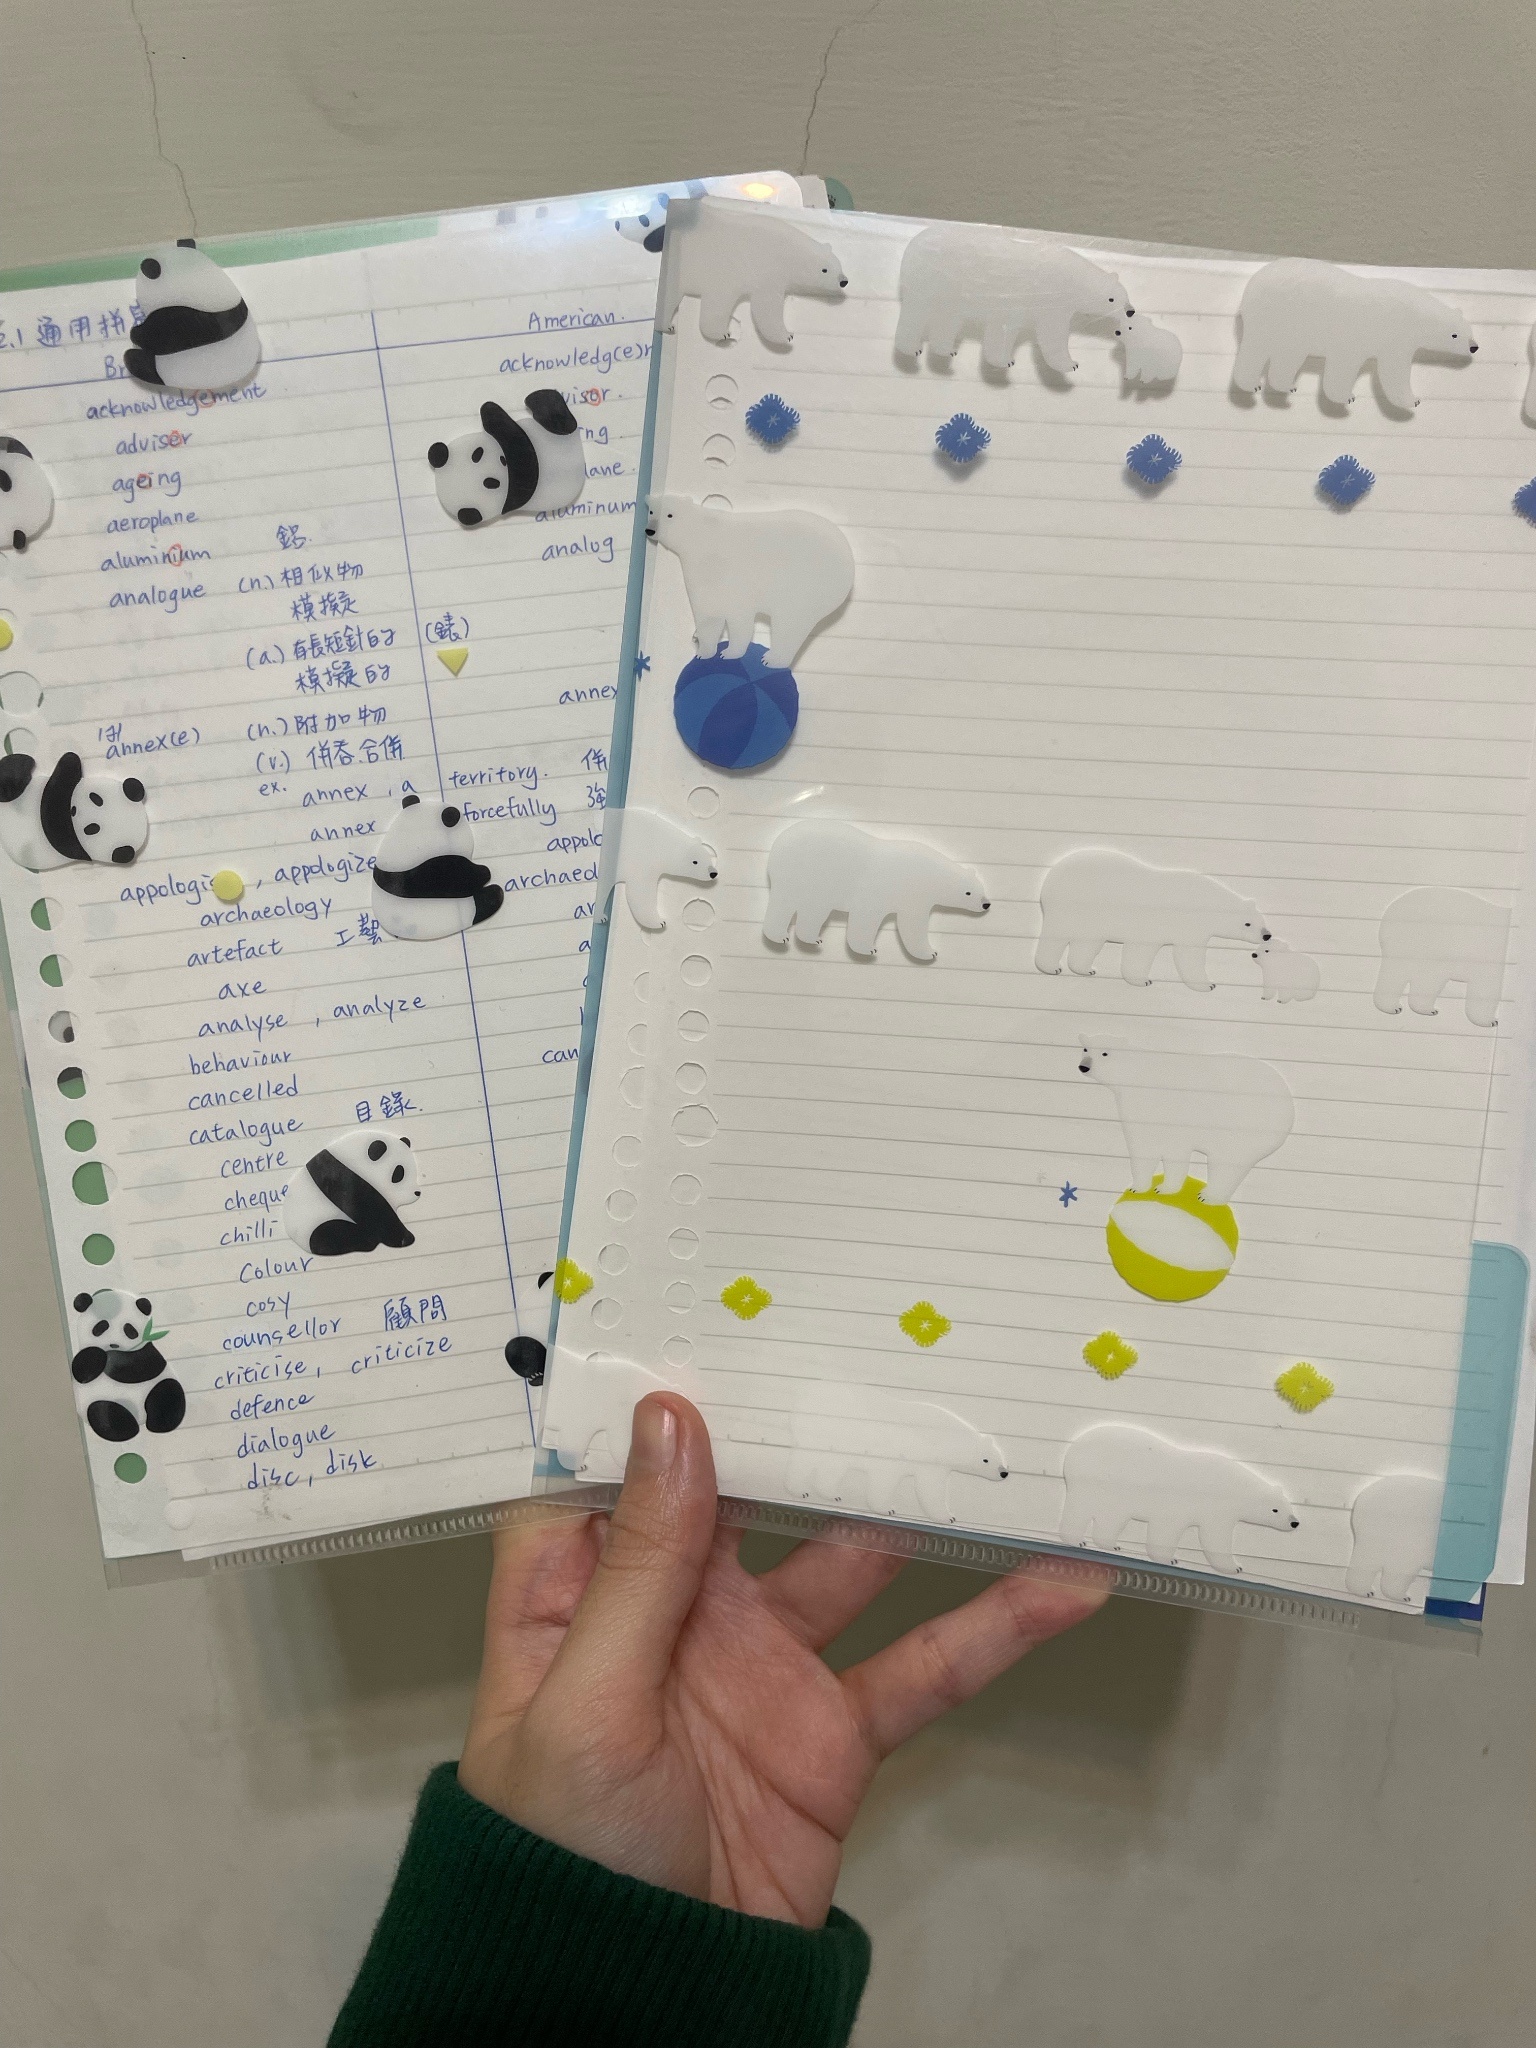 2.1 通用拼
American.
acknowledgement
acknowledg(e)
adviser
ageing
aeroplane
aluminium 鋁.
aluminum
analogue (n.) 相似物
analog
模擬
(a.) 有長短針的 (錶)
模擬的
annex(e) (n.) 附加物
annex
(v.) 併吞.合併
ex. annex , a territory. 併
annex forcefully 強
appologis , appologize
appolo
archaeology
archaeo
artefact 工藝
axe
analyse , analyze
behaviour
cancelled
can
catalogue 目錄.
centre
cheque
chilli
colour
cosy
counsellor 顧問
criticise, criticize
defence
dialogue
disc, disk